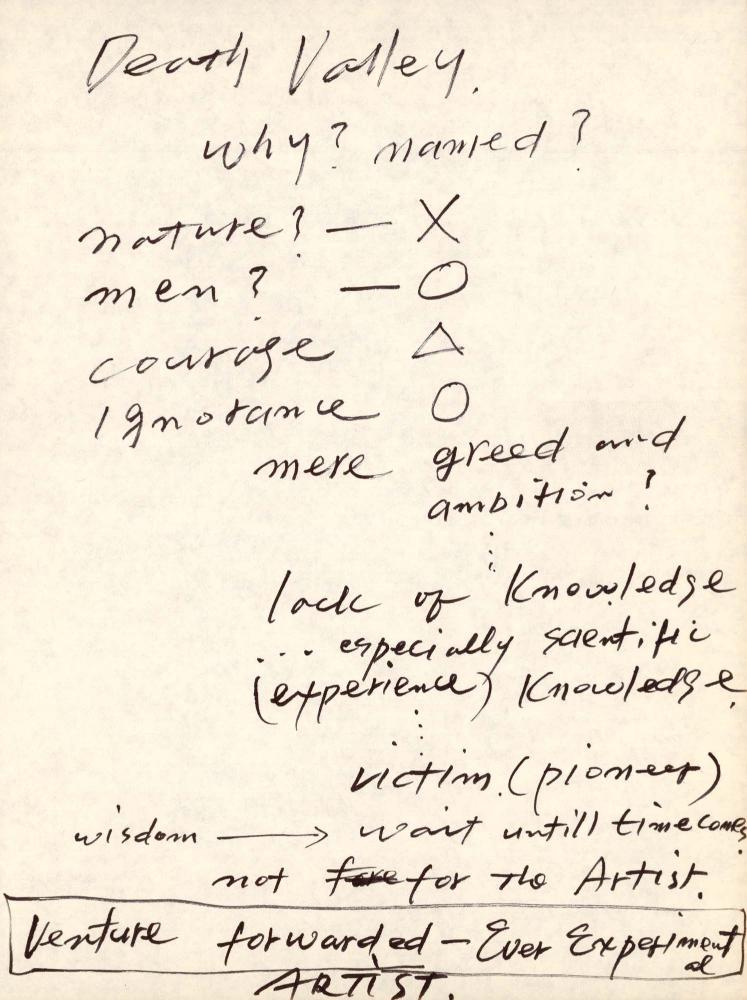 Death Valley.
why? named?
nature? — X
men? — O
courage △
Ignorance O
mere greed and
ambition?
lack of Knowledge
... especially scientific
(experience) Knowledge.
victim. (pioneer)
wisdom → wait untill time comes.
not for the Artist.
Venture forwarded — Ever Experimental
ARTIST.